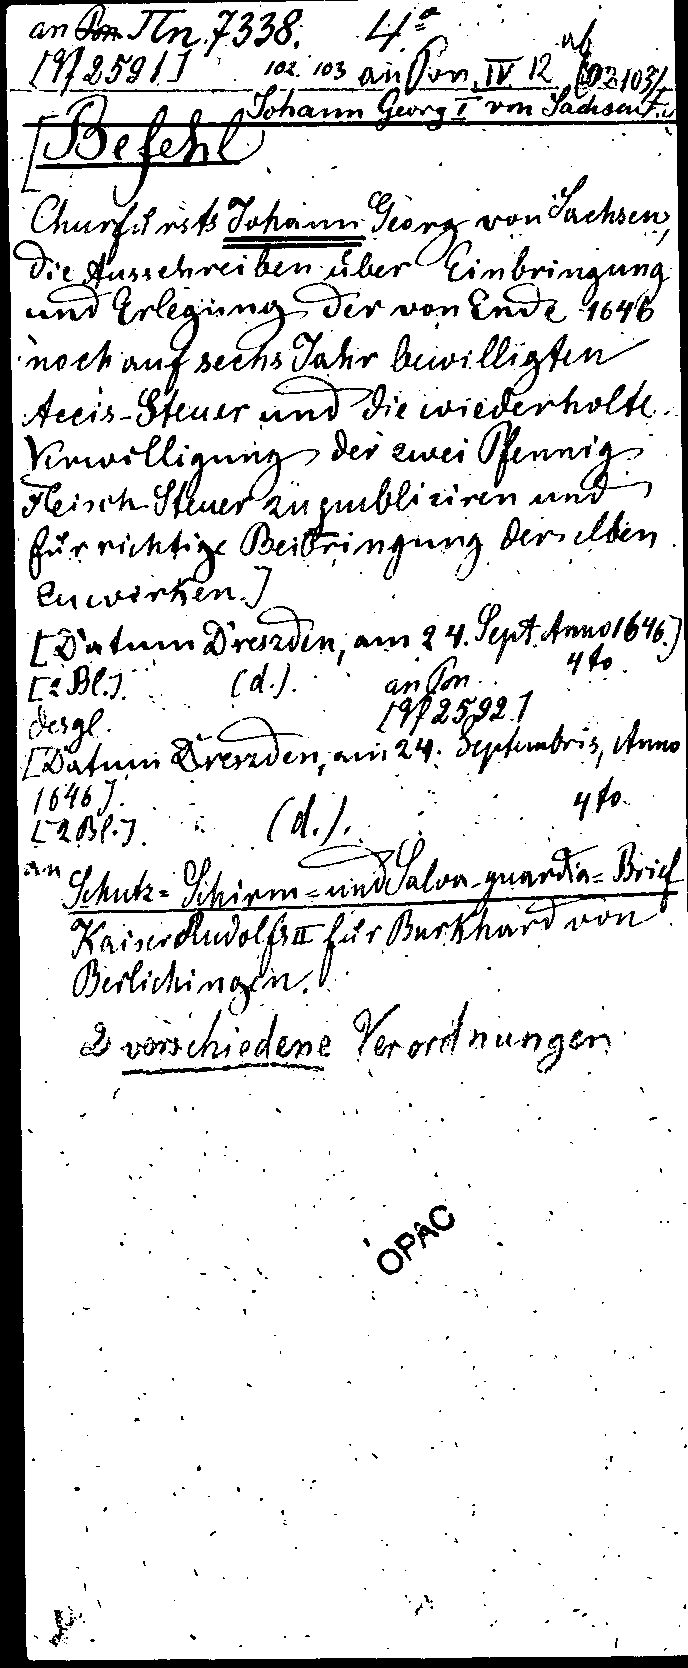 an Pon IIn. 7338. 4º
[9/2591] 102. 103 an Pon. IV. 12 ab (102.103)
Johann Georg I von Sachsen
[Befehl
Churfürsts Johann Georg von Sachsen,
die Ausschreiben über Einbringung
und Erlegung der von Ende 1646
noch auf sechs Jahr bewilligten
Accis-Steuer und die wiederholte
Verwilligung der zwei Pfennig
Fleisch-Steuer zu publiciren und
für richtige Beibringung derselben
zu wirken.]
[Datum Dreszden, am 24. Sept. Anno 1646.]
[2 Bl.]. (d.). an Pon. 4to
desgl. [9/2592]
[Datum Dreszden, am 24. Septembris, Anno
1646]. 4to
[2 Bl.]. (d.).
an Schutz- Schirm- und Salva-guardia-Brief
Kaiser Rudolfs II für Burkhard von
Berlichingen.
2 verschiedene Verordnungen
OPAC